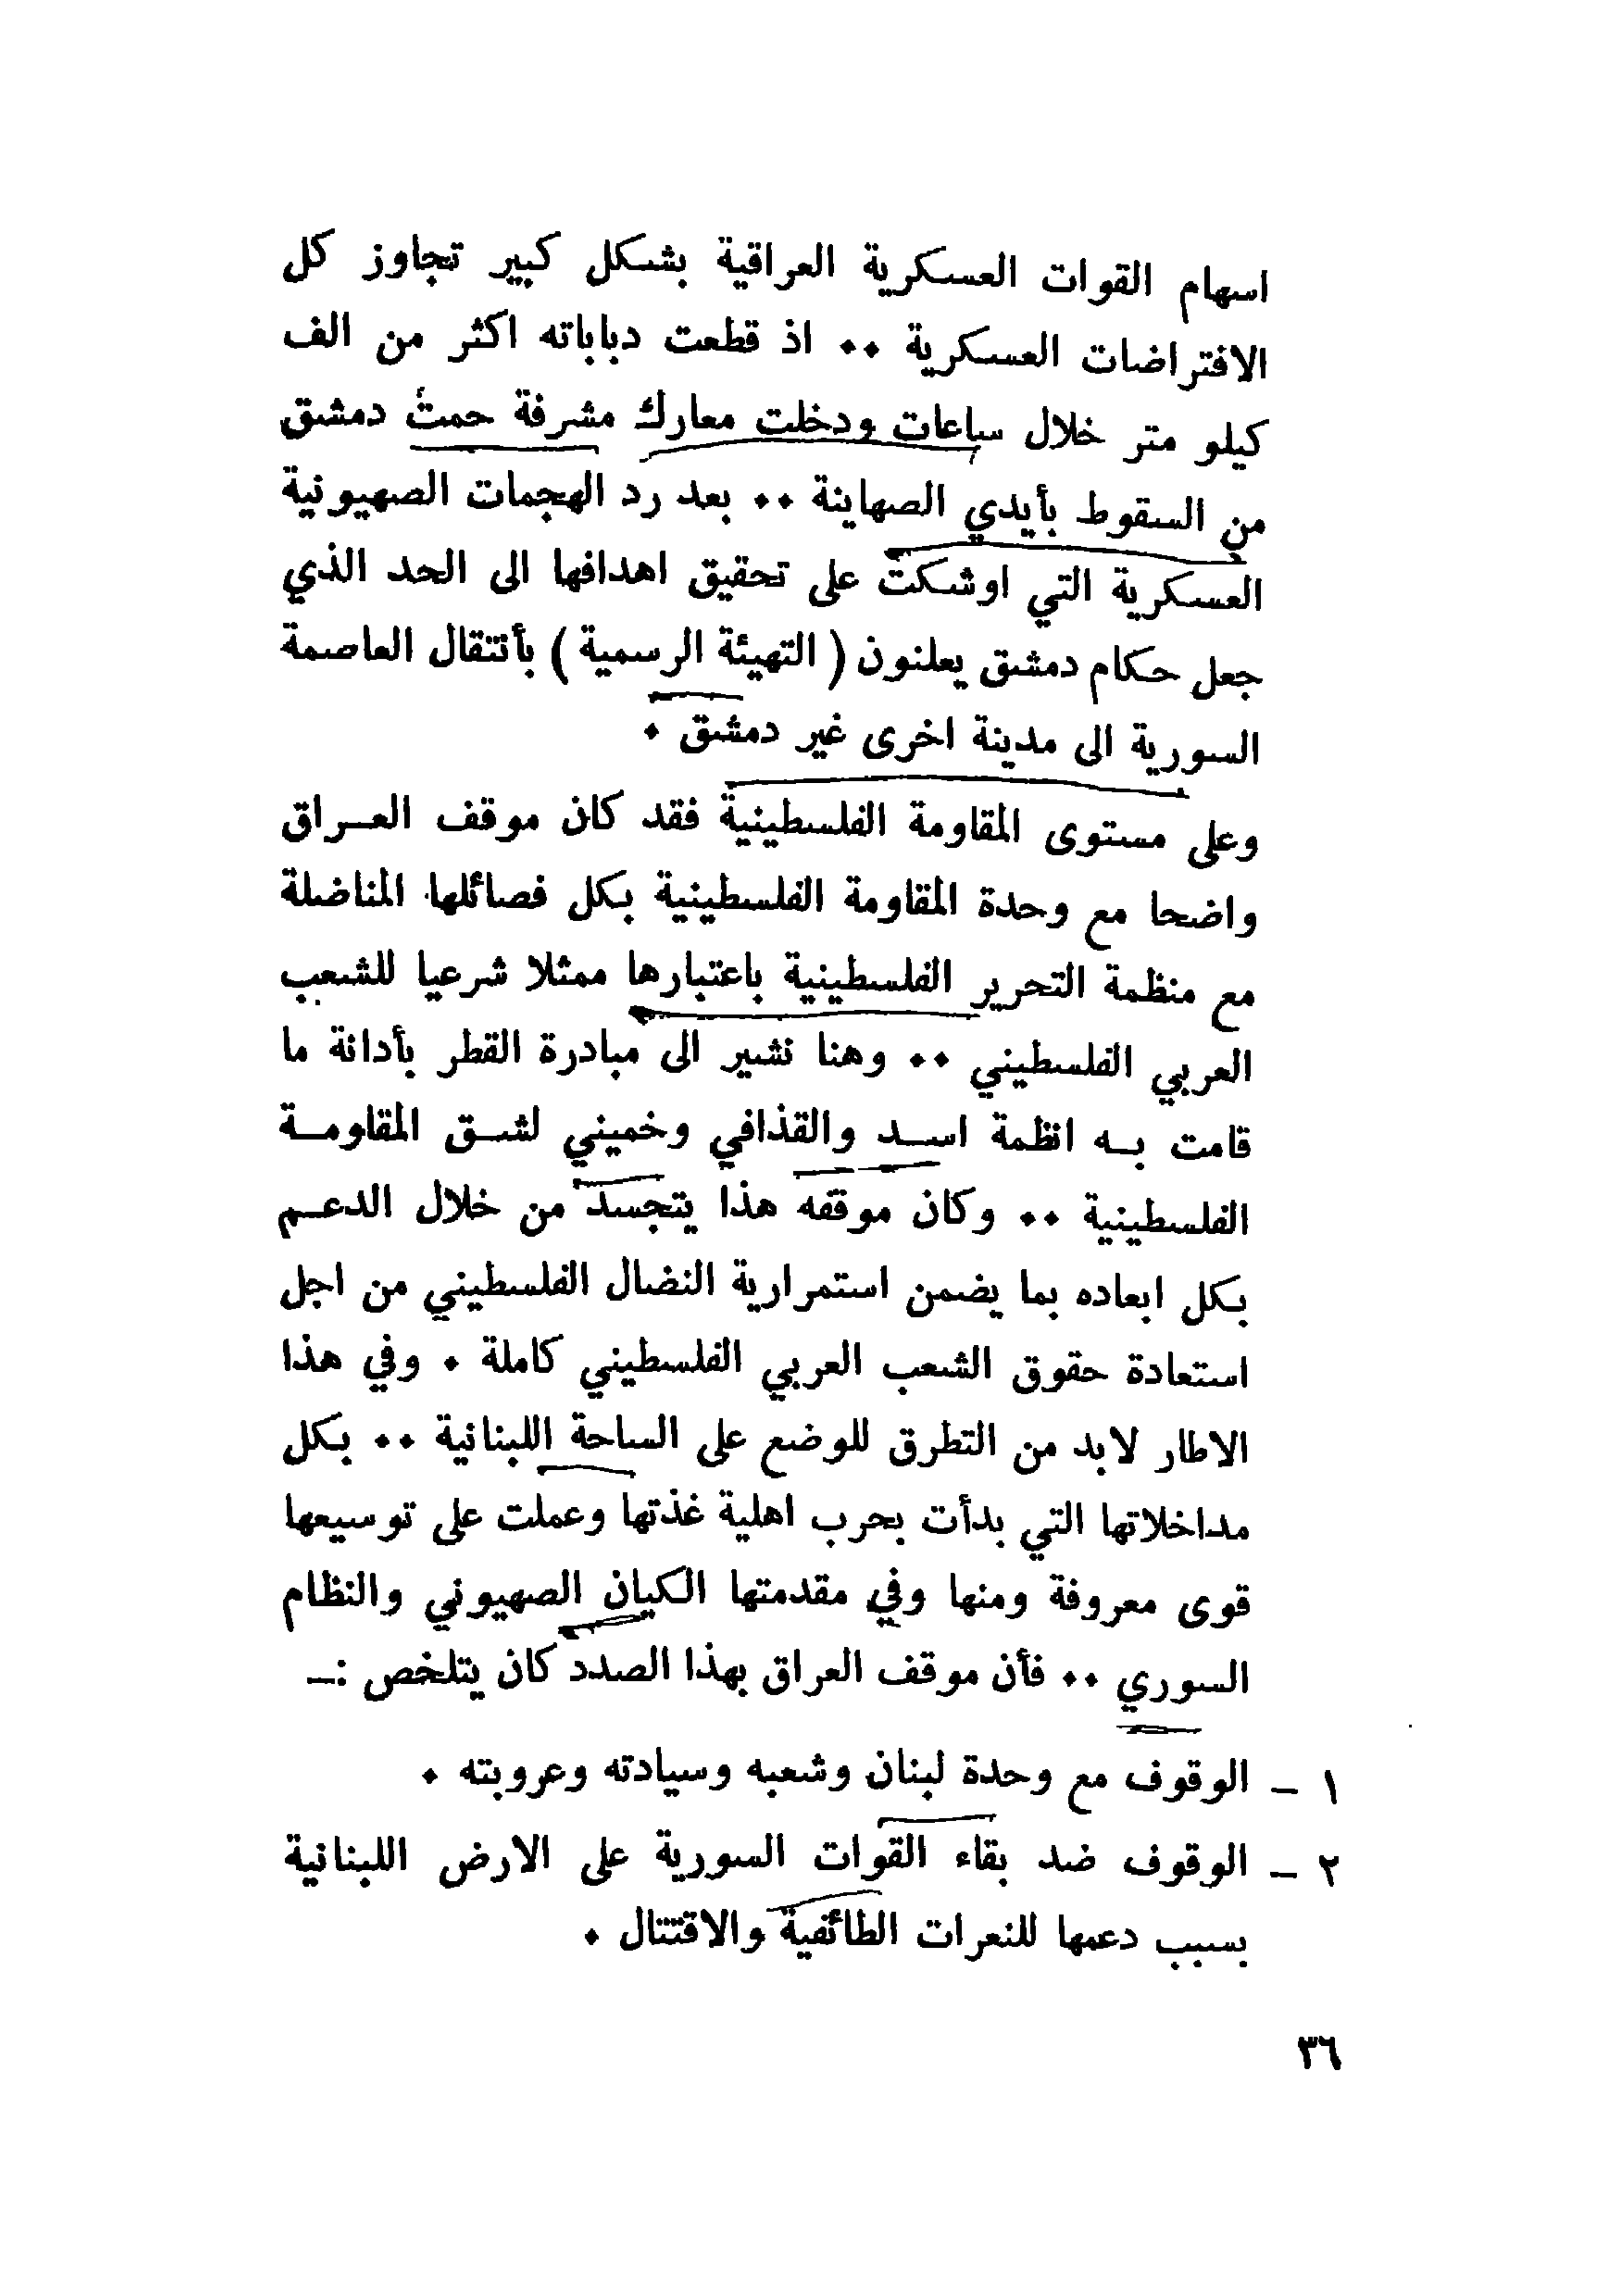 اسهام القوات العسكرية العراقية بشكل كبير تجاوز كل
الافتراضات العسكرية ٠٠ اذ قطعت دباباته اكثر من الف
كيلو متر خلال ساعات ودخلت معارك مشرفة حمت دمشق
من السقوط بأيدي الصهاينة ٠٠ بعد رد الهجمات الصهيونية
العسكرية التي اوشكت على تحقيق اهدافها الى الحد الذي
جعل حكام دمشق يعلنون ( التهيئة الرسمية ) بأنتقال العاصمة
السورية الى مدينة اخرى غير دمشق ٠
وعلى مستوى المقاومة الفلسطينية فقد كان موقف العــراق
واضحا مع وحدة المقاومة الفلسطينية بكل فصائلها المناضلة
مع منظمة التحرير الفلسطينية باعتبارها ممثلا شرعيا للشعب
العربي الفلسطيني ٠٠ وهنا نشير الى مبادرة القطر بأدانة ما
قامت بــه انظمة اســد والقذافي وخميني لشــق المقاومــة
الفلسطينية ٠٠ وكان موقفه هذا يتجسد من خلال الدعــم
بكل ابعاده بما يضمن استمرارية النضال الفلسطيني من اجل
استعادة حقوق الشعب العربي الفلسطيني كاملة ٠ وفي هذا
الاطار لابد من التطرق للوضع على الساحة اللبنانية ٠٠ بكل
مداخلاتها التي بدأت بحرب اهلية غذتها وعملت على توسيعها
قوى معروفة ومنها وفي مقدمتها الكيان الصهيوني والنظام
السوري ٠٠ فأن موقف العراق بهذا الصدد كان يتلخص :ــ
١ ــ الوقوف مع وحدة لبنان وشعبه وسيادته وعروبته ٠
٢ ــ الوقوف ضد بقاء القوات السورية على الارض اللبنانية
بسبب دعمها للنعرات الطائفية والاقتتال ٠
٣٦